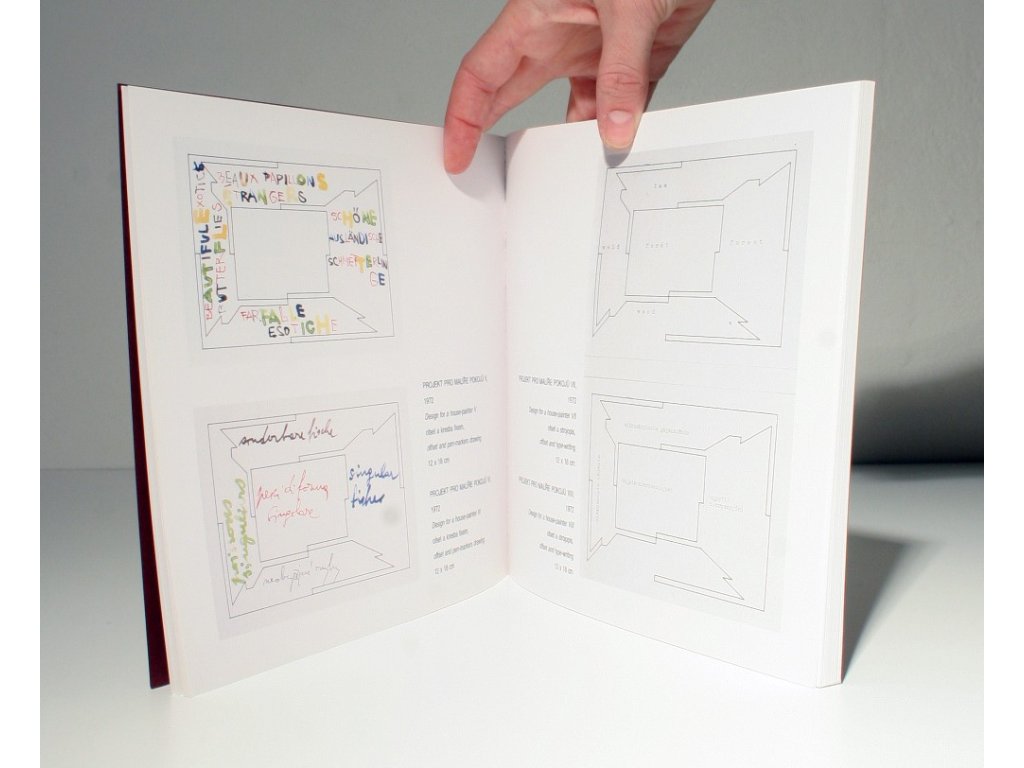 BEAUX PAPILLONS
ETRANGERS
BEAUTIFUL EXOTIC
BUTTERFLIES
SCHÖNE
AUSLÄNDISCHE
SCHMETTERLIN
GE
FARFALLE
ESOTICHE
sonderbare fische
singular
fishes
poissons
singuliers
PROJEKT PRO MALÍŘE POKOJŮ V,
1972
Design for a house-painter V
ofset a kresba fixem,
offset and pen-markers drawing
12 x 16 cm
PROJEKT PRO MALÍŘE POKOJŮ VI,
1972
Design for a house-painter VI
ofset a kresba fixem,
offset and pen-markers drawing
12 x 16 cm
les
wald
forêt
forest
PROJEKT PRO MALÍŘE POKOJŮ VII,
1972
Design for a house-painter VII
ofset a strojopis,
offset and type-writing
12 x 16 cm
PROJEKT PRO MALÍŘE POKOJŮ VIII,
1972
Design for a house-painter VIII
ofset a strojopis,
offset and type-writing
12 x 16 cm